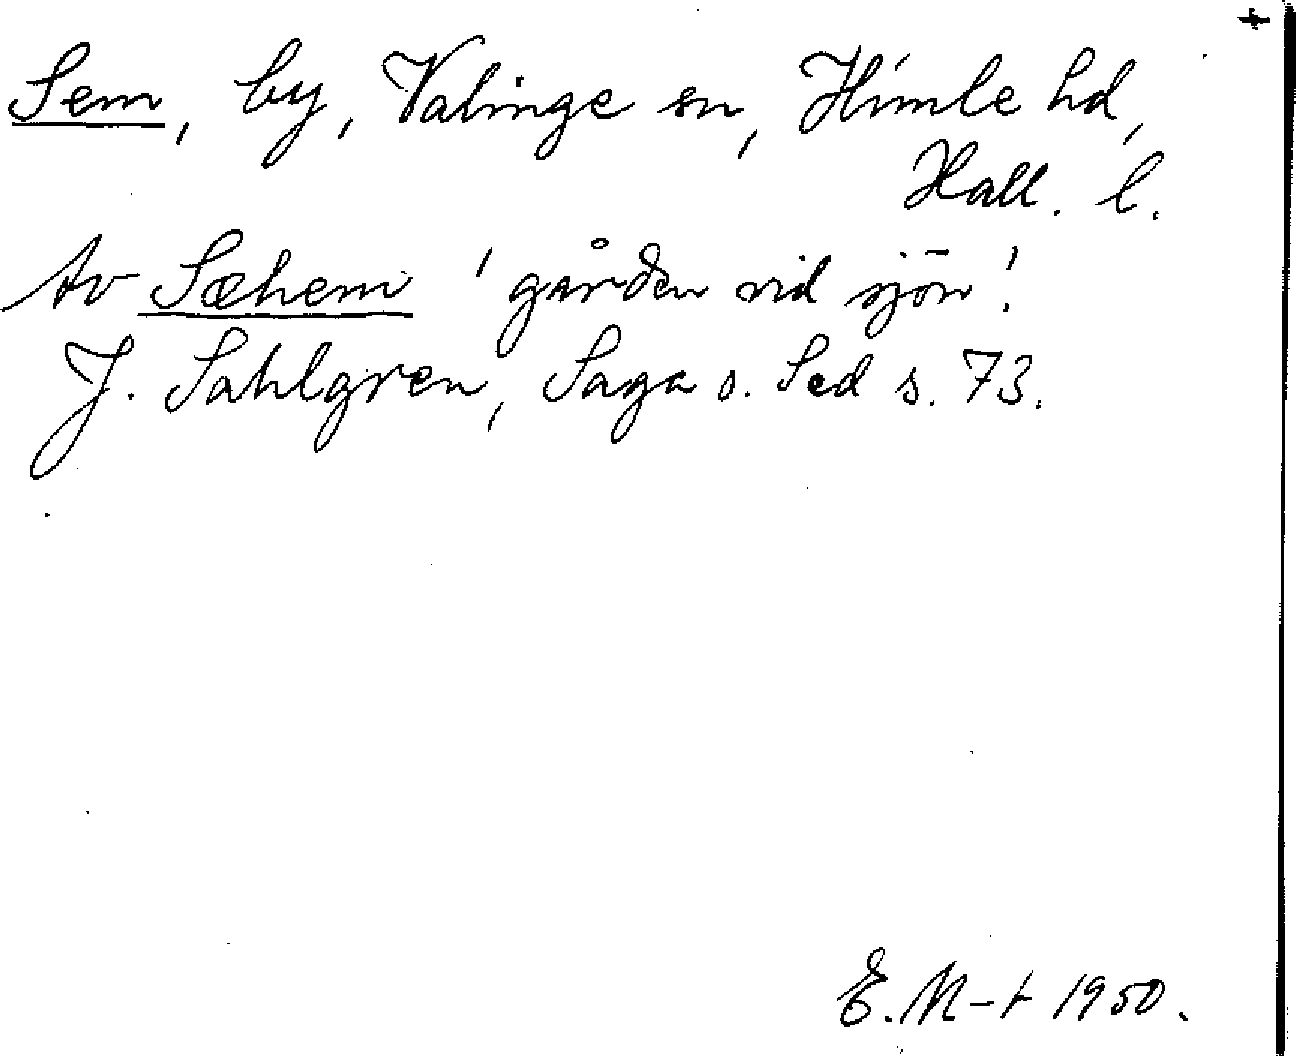 +
Sem, by, Valinge sn, Himle hd,
Hall. l.
Av Sæhem 'gården vid sjön'.
J. Sahlgren, Saga o. Sed s. 73.
E. M-t 1950.